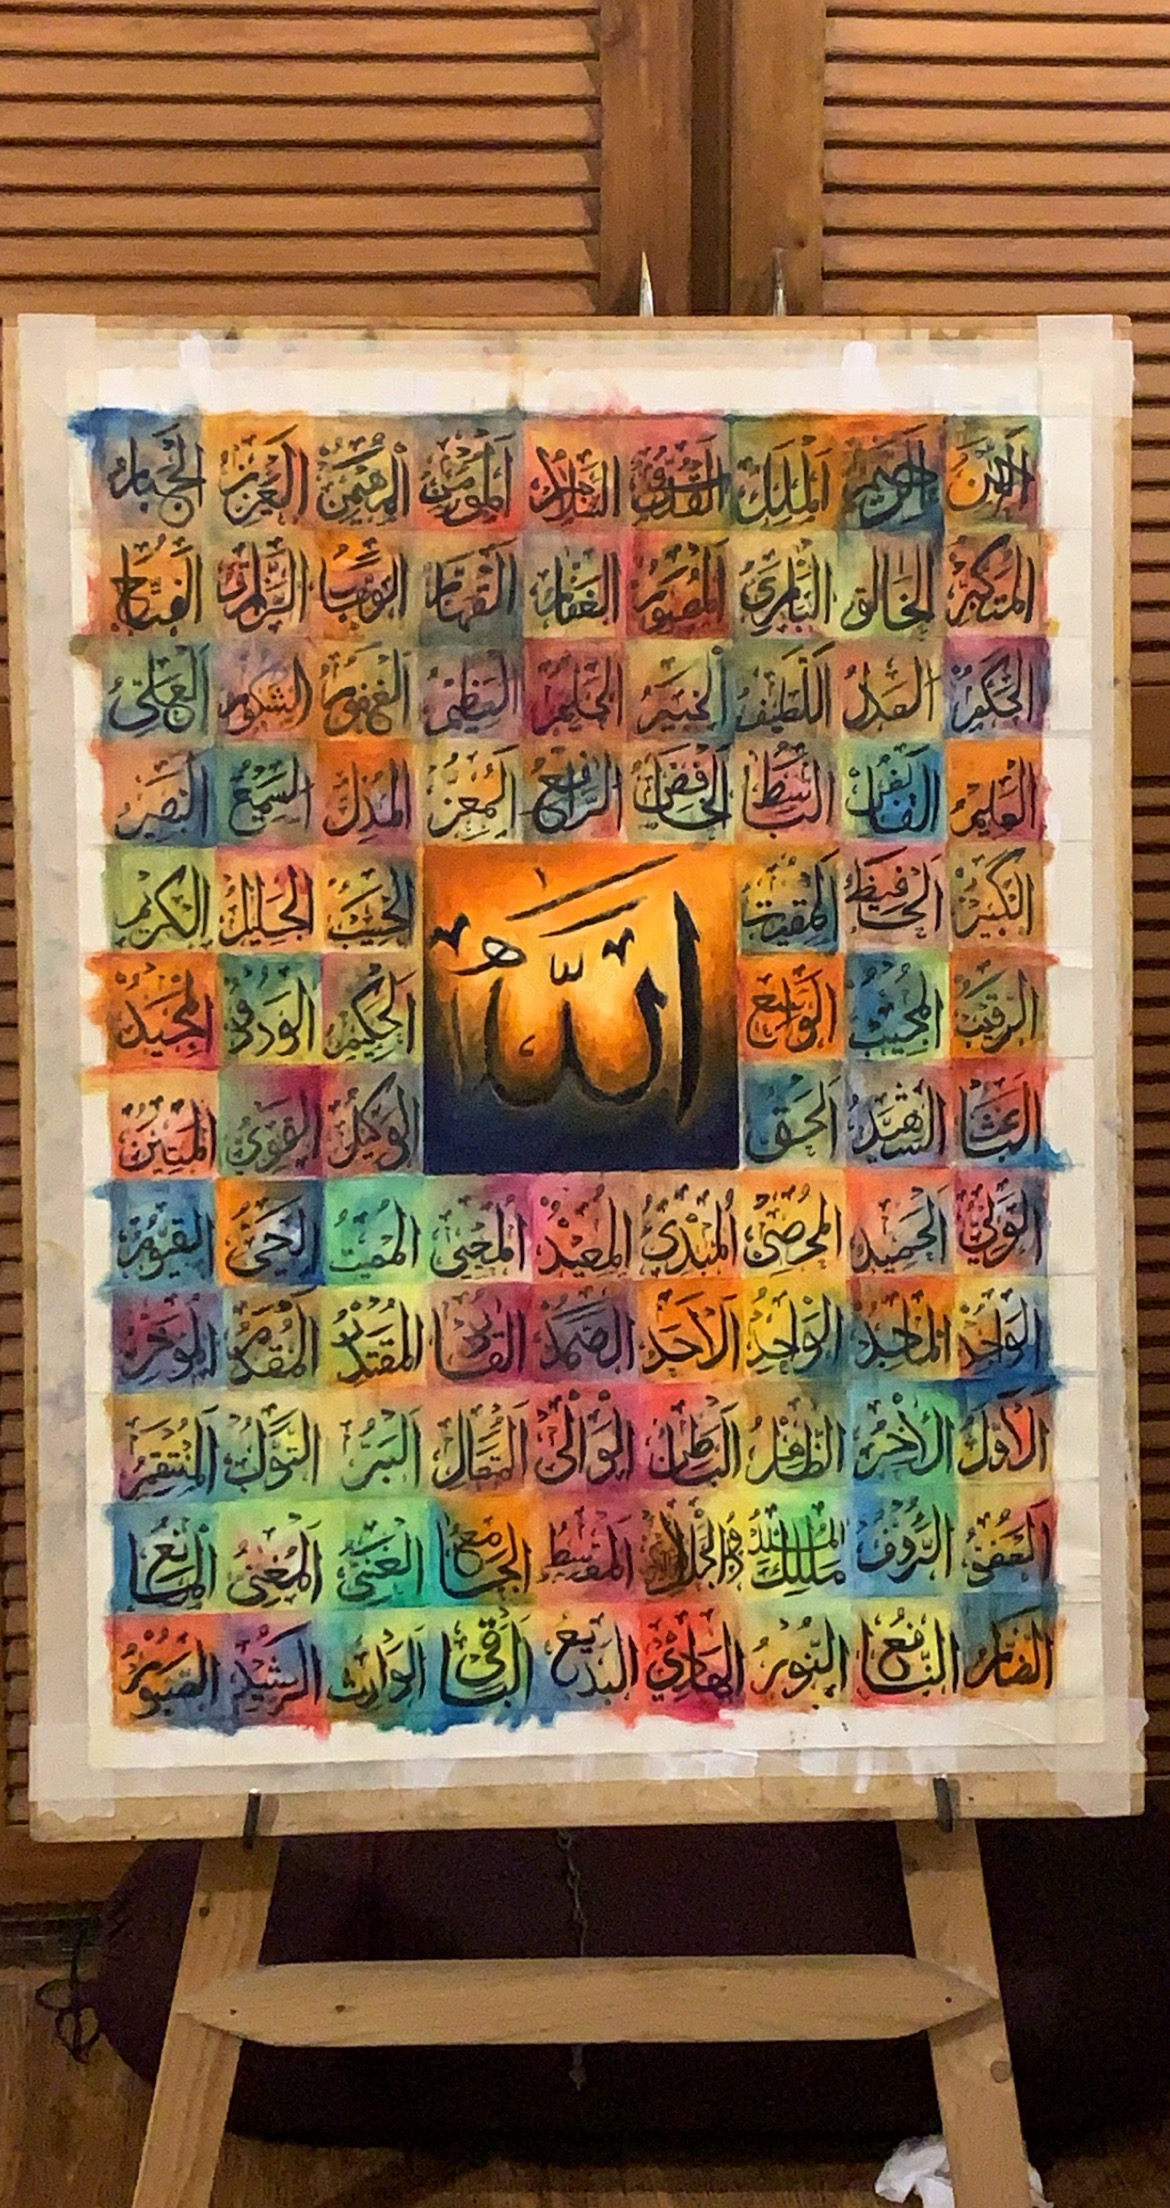 الرحمن الرحيم الملك القدوس السلام المؤمن المهيمن العزيز الجبار
المتكبر الخالق البارئ المصور الغفار القهار الوهاب الرزاق الفتاح
الحكم العدل اللطيف الخبير الحليم العظيم الغفور الشكور العلي
العليم القابض الباسط الخافض الرافع المعز المذل السميع البصير
الكبير الحافيظ المقيت الحسيب الجليل الكريم
الله
الرقيب المجيب الواسع الحكيم المجيد
الباعث الشهيد الحق الوكيل القوي المتين
الولي الحميد المحصي المبدي المعيد المحيي المميت الحي القيوم
الواجد الماجد الواحد الاحد الصمد القادر المقتدر المقدم الموخر
الأول الأخر الظاهر الباطن الوالي المتعال البر التواب المنتقم
العفو الرؤف مالك الملك المقسط الجامع الغني المغني المانع
الضار النافع النور الهادي البديع الباقي الوارث الرشيد الصبور